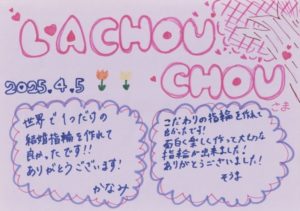 LACHOU
CHOU
さま
2025.4.5
世界で1つだけの
結婚指輪を作れて
良かったです!!
ありがとうございます!
かなみ
こだわりの指輪を作れて
良かったです!
面白く楽しく作って大切な
指輪が出来ました!
ありがとうございました!
そうま